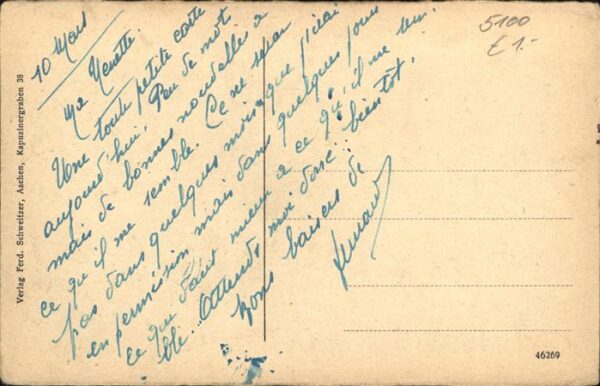 10 Mars
Ma Nenette.
Une toute petite carte
aujourd'hui. Peu de mot
mais de bonnes nouvelles à
ce qu'il me semble. Ce ne sera
pas dans quelques mois que j'irai
en permission mais dans quelques jours
ce qui vaut mieux à ce qu'il me sem-
ble. Attends moi donc bientôt.
Bons baisers de
Fernand
5100
£ 1.-
Verlag Ferd. Schweitzer, Aachen, Kapuzinergraben 38
46269